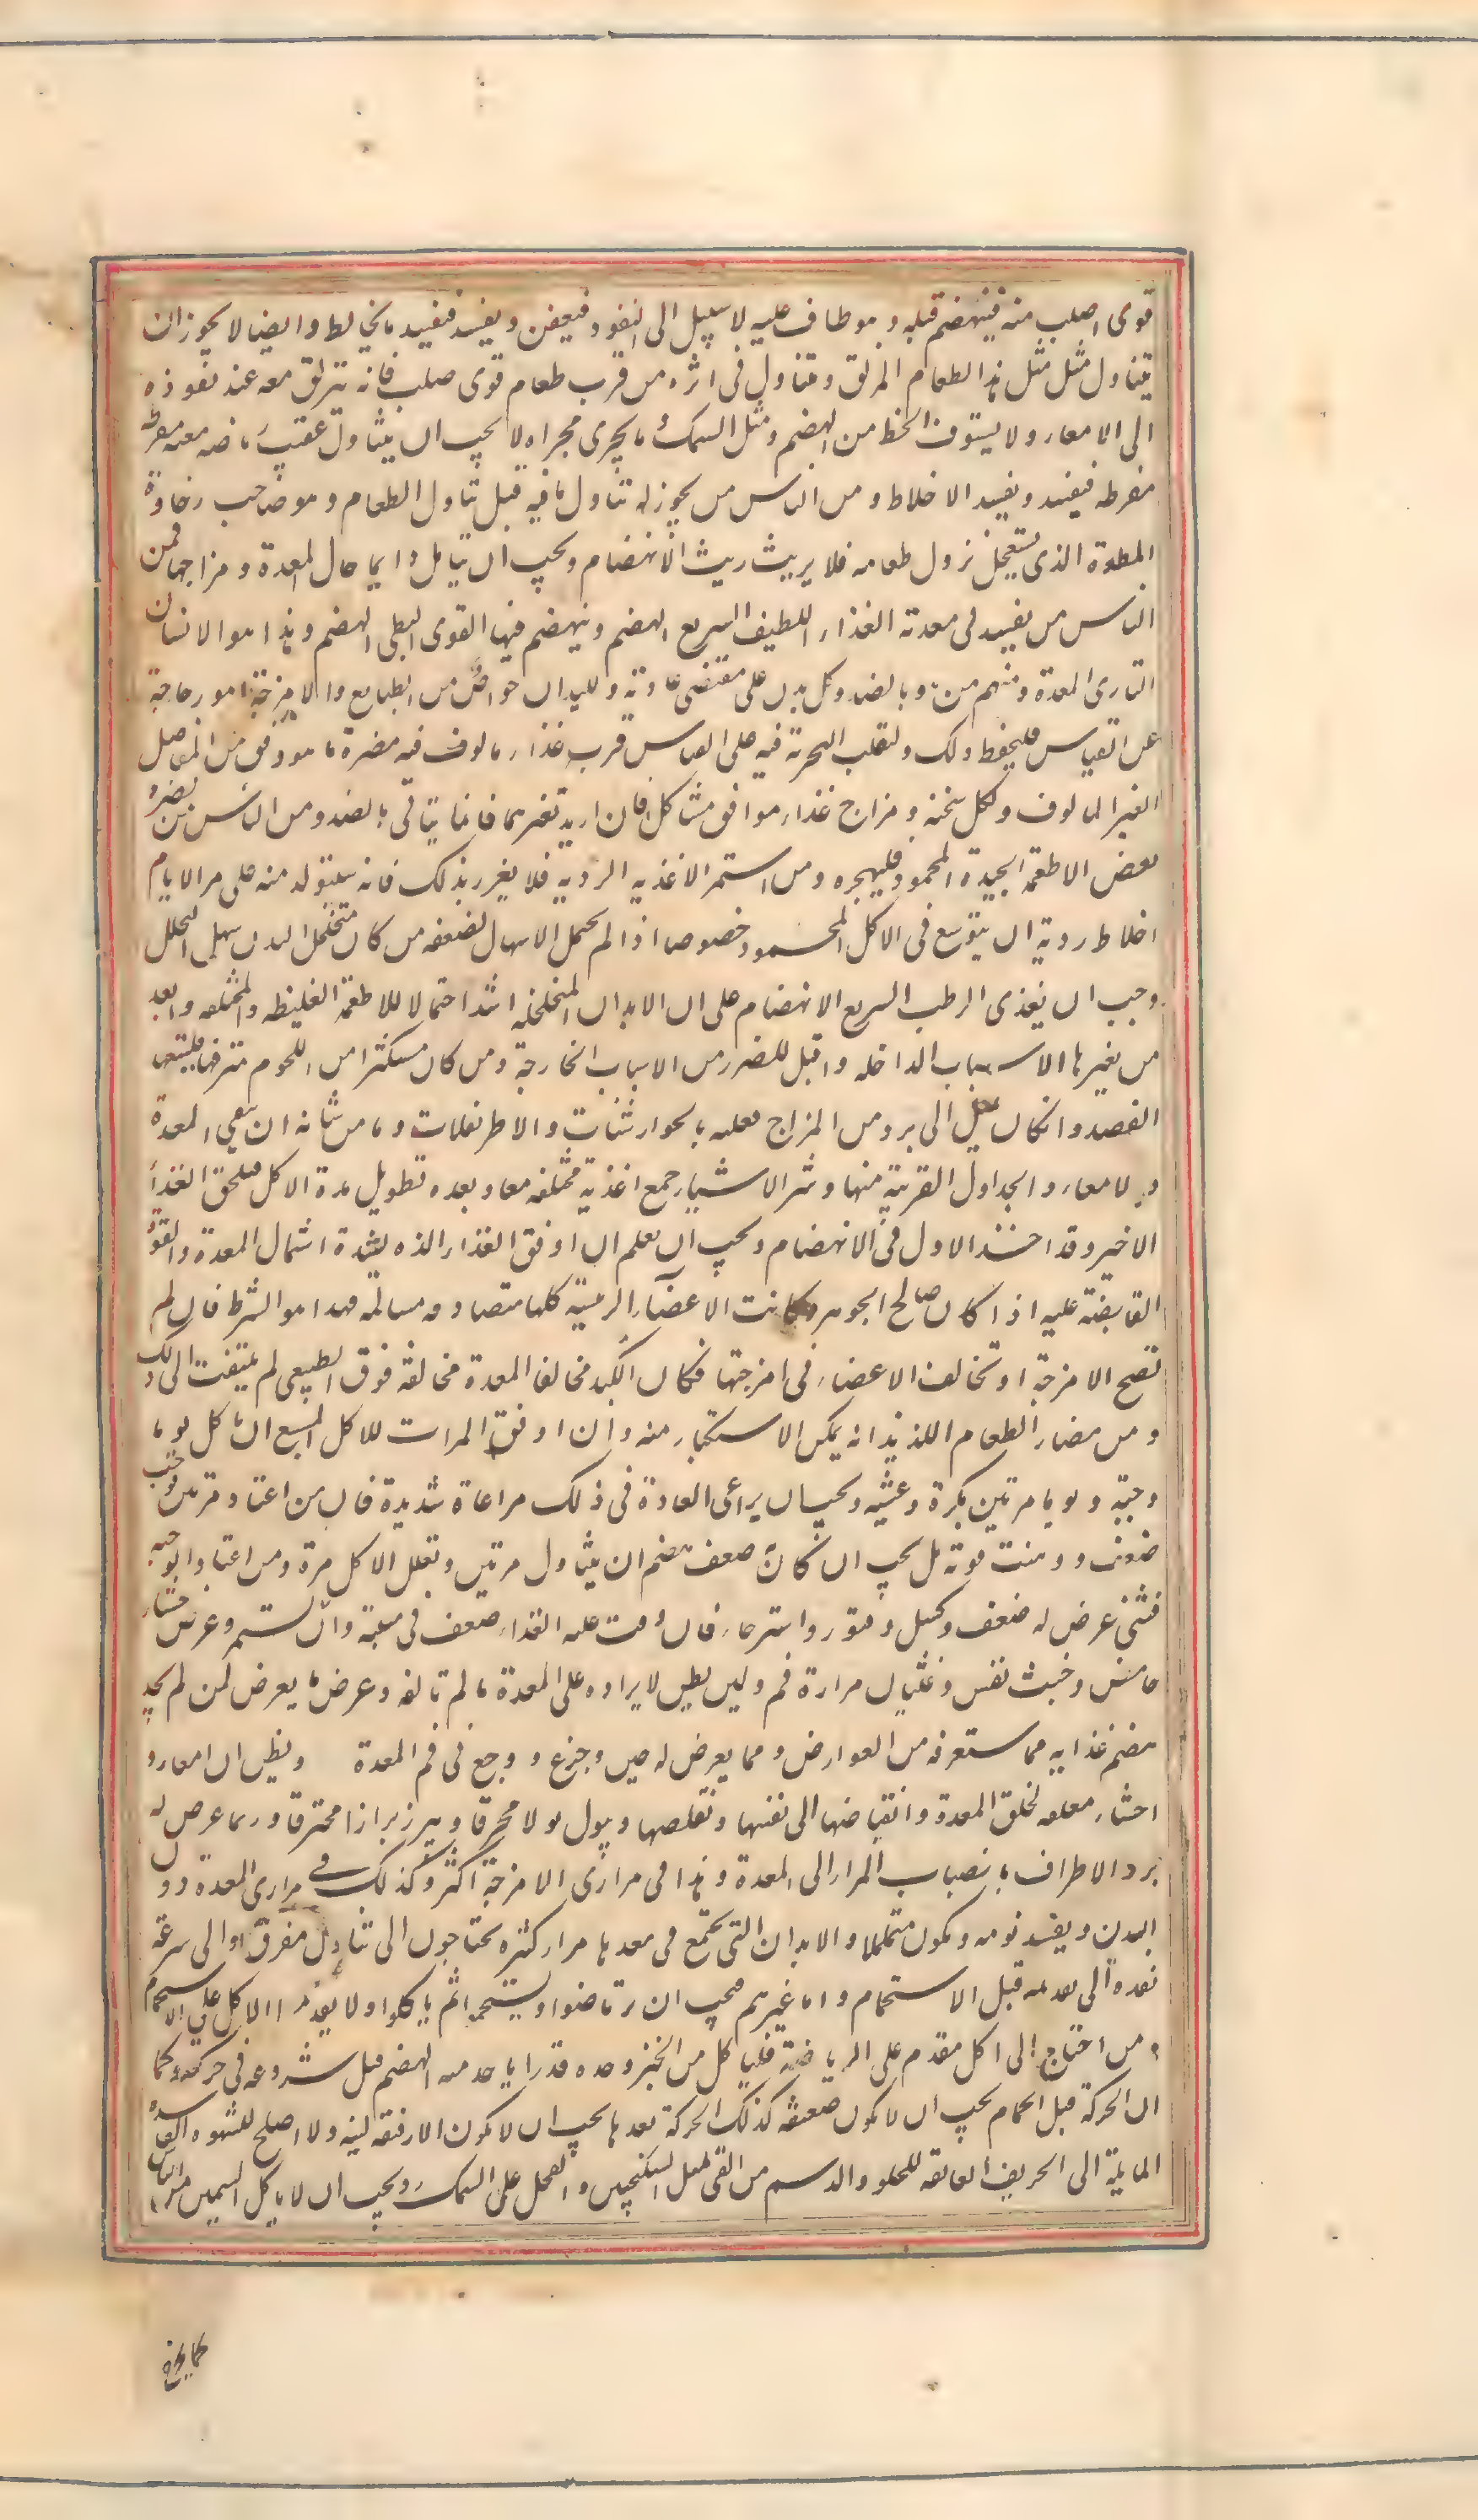 قوى اصلب منه فينهضم قبله و هو طاف عليه لا سبيل الى النفوذ فيعفن ويفسد فيفسد ما يخالطه وايضا لا يجوز ان
يتناول مثل مثل هذا الطعام المزلق ويتناول فى اثره من قرب طعام قوى صلب فانه ينزلق معه عند نفوذه
الى الامعاء ولا يستوفى الحظ من الهضم ومثل السمك وما يجرى مجراه لا يجب ان يتناول عقيب رياضه معه معرقه
مفرطه فيفسد ويفسد الاخلاط ومن الناس من يجوز له تناول ما فيه قبل تناول الطعام وهو صاحب رخاوة
المعدة الذى يستعجل نزول طعامه فلا يريث ريث الانهضام ويجب ان يتامل دايما حال المعدة ومزاجها فمن
الناس من يفسد فى معدته الغذاء اللطيف السريع الهضم وينهضم فيها القوى البطى الهضم وهذا هو الانسان
النارى المعدة ومنهم من وبالضد وكل يدبر على مقتضى عادته وللبلدان خواص من الطبايع والامزجة امور خارجة
عن القياس فليحفظ ذلك وليغلب التجربة فيه على القياس فرب غذاء مالوف فيه مضرة ما هو اوفق من الفاضل
الغير المالوف ولكل سخنة و مزاج غذاء موافق مشاكل فان اريد تغيرهما فانما يتاتى بالضد ومن الناس من يضره
بعض الاطعمة الجيدة المحمودة فليهجره ومن استمر الاغذيه الرديه فلا يغتر بذلك فانه سيتولد منه على مر الايام
اخلاط ردية ان يتوسع فى الاكل المحمود خصوصا اذا لم يحتمل الاسهال لضعفه من كان متخلخل البدن سهل التحلل
وجب ان يغذى الرطب السريع الانهضام على ان الابدان المتخلخله اشد احتمالا للاطعمة الغليظه والمختلفه وابعد
من يغيرها الاسباب الداخله واقبل للضرر من الاسباب الخارجة ومن كان مستكثرا من اللحوم مترفها فليتعهد
الفصد وان كان يميل الى برد من المزاج فعليه بالجوارشنات والاطريفلات وما من شانه ان ينقى المعدة
والامعاء والجداول القريبة منها وشر الاشياء جمع اغذية مختلفه معا وبعده تطويل مدة الاكل فيلحق الغذاء
الاخير وقد اخذ الاول فى الانهضام ويجب ان يعلم ان اوفق الغذاء الذه لشدة اشتمال المعدة والقوة
القابضة عليه اذا كان صالح الجوهر وكانت الاعضاء الرئيسة كلها متصادقه مسالمة فهذا هو الشرط فان لم
تصح الامزجة او تخالفت الاعضاء فى امزجتها فكان الكبد مخالفا المعدة مخالفة فوق الطبيعى لم يلتفت الى ذلك
ومن مضار الطعام اللذيذ انه يمكن الاستكثار منه وان اوفق المرات للاكل المشبع ان ياكل يوما
وجبة ويوما مرتين بكرة وعشيه ويجب ان يراعى العادة فى ذلك مراعاة شديدة فان من اعتاد مرتين وجب
ضعف ووهنت قوته بل يجب ان كان ضعف هضم ان يتناول مرتين ويقلل الاكل مرة ومن اعتاد الوجبه
فثنى عرض له ضعف وكسل وفتور واسترخاء فان وقفت عليه الغذاء ضعف فى مبيته وان تستمر وعرض جشاء
حامض وخبث نفس وغثيان مرارة فم ولين بطن لايراده على المعدة ما لم تالفه وعرض ما يعرض لمن لم يجد
هضم غذايه مما ستعرفه من العوارض ومما يعرض له جبن وجزع ووجع فى فم المعدة ويظن ان امعاءه و
احشاءه معلقه لخلو المعدة وانقباضها الى نفسها وتقلصها ويبول بولا محرقا ويبرز برازا محترقا وربما عرض له
برد الاطراف بانصباب المرار الى المعدة وهذا فى مرارى الامزجة اكثر وكذلك فى مرارى المعدة دون
البدن ويفسد نومه ويكون متململا والابدان التى يجتمع فى معدها مرار كثيره يحتاجون الى تناول مفرق والى سرعة
تغذه والى تقديمه قبل الاستحمام واما غيرهم فيجب ان يرتاضوا ويستحموا ثم ياكلوا ولا يقدموا الاكل على الاستحمام
ومن احتاج الى اكل مقدم على الرياضة فلياكل من الخبز وحده قدرا ياخذ منه الهضم قبل شروعه فى حركته وكما
ان الحركة قبل الحمام يجب ان لا يكون ضعيفه كذلك الحركة بعدها يجب ان لا يكون الا رفيقة لينه ولا اصلح للشهوه الفاسده
المايلة الى الحريف العايقه للحلو والدسم من القى بمثل السكنجبين والفجل على السمك ويجب ان لا ياكل السمين من الناس
كما يخرج